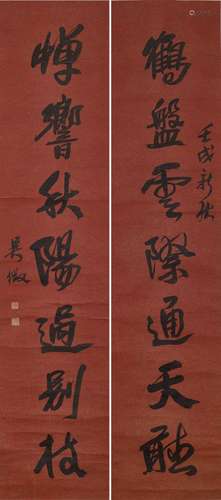 鶴盤雲際通天聽
壬戌新秋
蟬響秋陽過別枝
吳徵